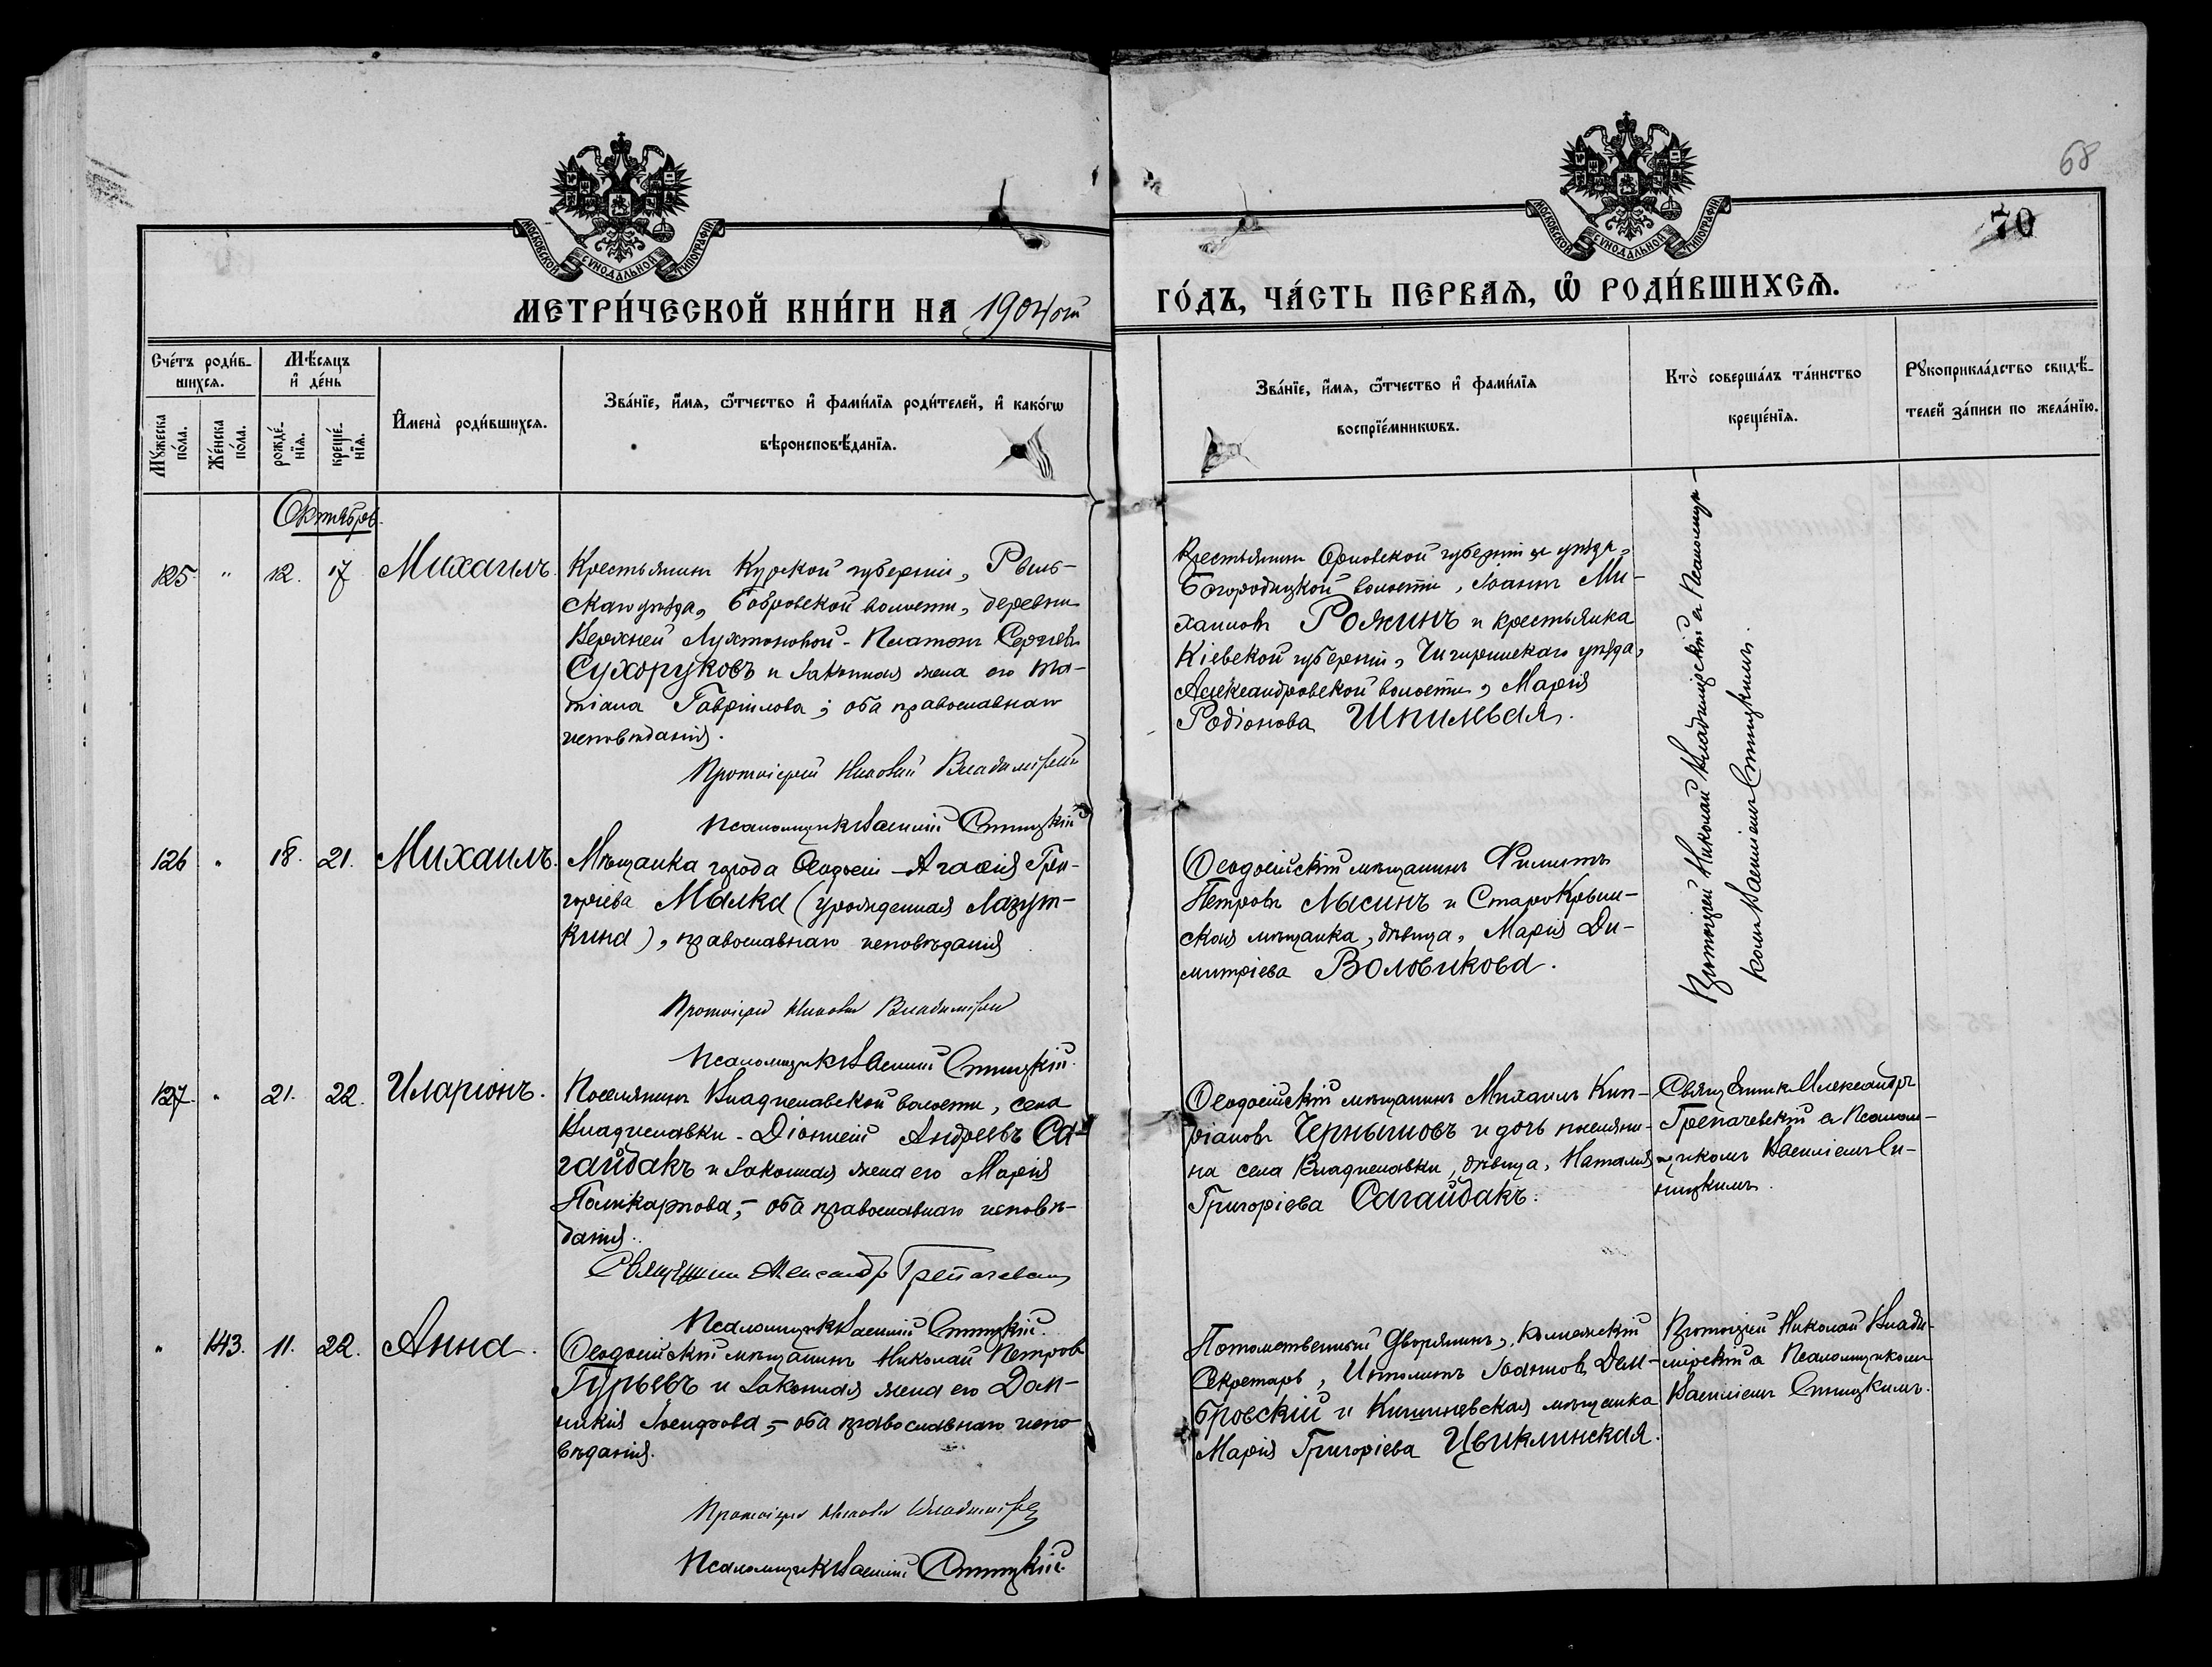 68
70
МОСКОВСКОЙ СУНОДАЛЬНОЙ ТИПОГРАФІИ
МОСКОВСКОЙ СУНОДАЛЬНОЙ ТИПОГРАФІИ
МЕТРИ́ЧЕСКОЙ КНИ́ГИ НА 1904ой ГО́ДЪ, ЧА́СТЬ ПЕРВАѦ, Ѡ҆ РОДИ́ВШИХСѦ.
Сче́тъ роди́в-
шихсѧ.
Мꙋ́жеска
по́ла.
Же́нска
по́ла.
Мѣ́сяцъ
и҆ де́нь
рожде́-
нїѧ.
креще́-
нїѧ.
И҆мена̀ роди́вшихсѧ.
Зва́нїе, и҆́мѧ, ѻ҆́тчество и҆ фами́лїѧ роди́телей, и҆ како́гѡ
вѣроисповѣ́данїѧ.
Зва́нїе, и҆́мѧ, ѻ҆́тчество и҆ фами́лїѧ
воспрїе́мникѡвъ.
Кто̀ соверша́лъ та́инство
креще́нїѧ.
Рꙋкоприкла́дство свидѣ́-
телей за́писи по жела́нїю.
Октябрь.
125. " 12. 17 Михаилъ.
Крестьянинъ Курской губерніи, Рыль-
скаго уѣзда, Бобровской волости, деревни
Верхней Лухтоновой - Платонъ Сергіевъ
Сухоруковъ и законная жена его Та-
тіана Гавріилова; оба православнаго
исповѣданія.
Протоіерей Николай Владимірскій
Псаломщикъ Василій Синицкій
Крестьянинъ Орловской губерніи и уѣзда,
Богородицкой волости, Іоаннъ Ми-
хаиловъ Рожинъ и крестьянка
Кіевской губерніи, Чигиринскаго уѣзда,
Александровской волости, Марія
Родіонова Шпилевая.
Протоіерей Николай Владимірскій съ Псаломщи-
комъ Василіемъ Синицкимъ.
126 " 18. 21. Михаилъ.
Мѣщанка города Ѳеодосіи - Агаѳія Гри-
горіева Малка (урожденная Лазут-
кина), православнаго исповѣданія
Протоіерей Николай Владимірскій
Псаломщикъ Василій Синицкій.
Ѳеодосійскій мѣщанинъ Филиппъ
Петровъ Лысинъ и СтароКрым-
ская мѣщанка, дѣвица, Марія Ди-
митріева Воловикова.
127. " 21. 22. Иларіонъ.
Поселянинъ Владиславской волости, села
Владиславки - Діонисій Андреевъ Са-
гайдакъ и законная жена его Марія
Поликарпова, - оба православнаго исповѣ-
данія.
Священникъ Александръ Трепачевскій
Псаломщикъ Василій Синицкій.
Ѳеодосійскій мѣщанинъ Михаилъ Кип-
ріановъ Чернышовъ и дочь поселяни-
на села Владиславки, дѣвица, Наталія
Григоріева Сагайдакъ.
Священникъ Александръ
Трепачевскій съ Псалом-
щикомъ Василіемъ Си-
ницкимъ.
" 143. 11. 22. Анна.
Ѳеодосійскій мѣщанинъ Николай Петровъ
Гурьевъ и законная жена его Дом-
никія Іосифова, - оба православнаго испо-
вѣданія.
Протоіерей Николай Владимірскій
Псаломщикъ Василій Синицкій.
Потомственный Дворянинъ, Коллежскій
Секретарь, Иполитъ Іоанновъ Дом-
бровскій и Кишиневская мѣщанка
Марія Григоріева Цвиклинская.
Протоіерей Николай Влади-
мірскій съ Псаломщикомъ
Василіемъ Синицкимъ.